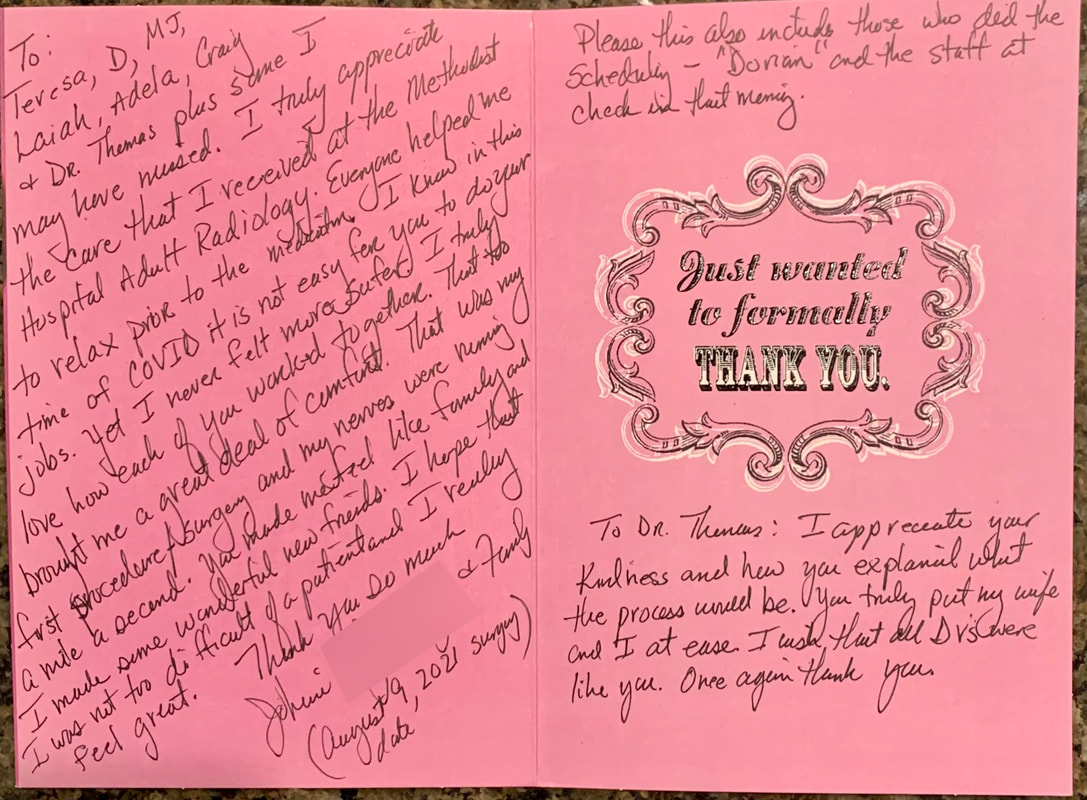 To:
Teresa, D, MJ,
Laiah, Adela, Craig
& Dr. Thomas plus some I
may have missed. I truly appreciate
the care that I received at the Methodist
Hospital Adult Radiology. Everyone helped me
to relax prior to the medication. I know in this
time of COVID it is not easy for you to do your
jobs. Yet I never felt more safer. I truly
love how each of you worked together. That too
brought me a great deal of comfort. That was my
first procedure/surgery and my nerves were running
a mile a second. You made me feel like family and
I made some wonderful new friends. I hope that
I was not too difficult of a patient and I really
feel great.
Thank you so much
& Family
(August 9, 2021 surgery)
date
Please this also include those who did the
Scheduling - "Dorian" and the staff at
check in that morning.
Just wanted
to formally
THANK YOU.
To Dr. Thomas: I appreciate your
Kindness and how you explained what
the process would be. You truly put my wife
and I at ease. I wish that all Dr's were
like you. Once again thank you.